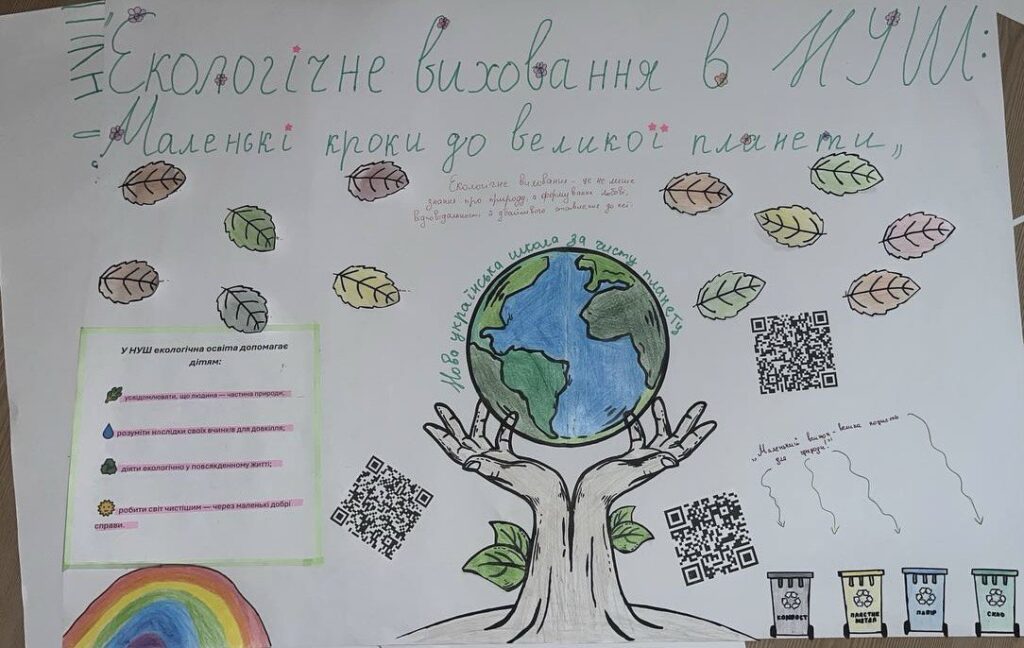 Екологічне виховання в НУШ:
"Маленькі кроки до великої планети"
Екологічне виховання - це не лише
знання про природу, а формування любові,
відповідальності й дбайливого ставлення до неї.
Нова українська школа за чисту планету
У НУШ екологічна освіта допомагає
дітям:
усвідомлювати, що людина — частина природи;
розуміти наслідки своїх вчинків для довкілля;
діяти екологічно у повсякденному житті;
робити світ чистішим — через маленькі добрі
справи.
"Маленький вчинок - велика
для природи!"
КОМПОСТ
ПЛАСТИК
МЕТАЛ
ПАПІР
СКЛО